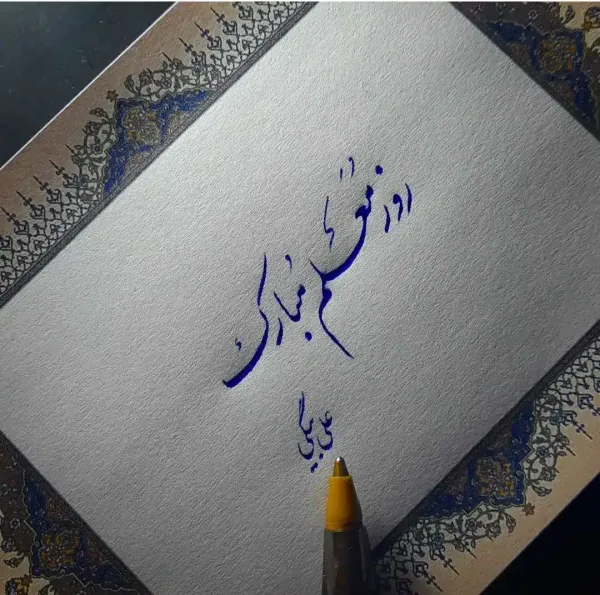 روز معلم مبارک
علی بیگی